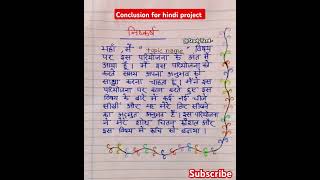 Conclusion for hindi project
निष्कर्ष
यहाँ, मैं " topic name " विषय
पर इस परियोजना के अंत में
आया हूँ। मैं इस परियोजना को
करते समय अपना अनुभव को
साझा करना चाहता हूँ। मैंने इस
परियोजना पर काम करते हुए इस
विषय के बारे में कई नई चीजें
सीखी और यह मेरे लिए सीखने
का अद्भुत अनुभव है। इस परियोजना
ने मेरे शोध चिंतन कौशल और
इस विषय में रुचि को बढ़ाया।
Subscribe